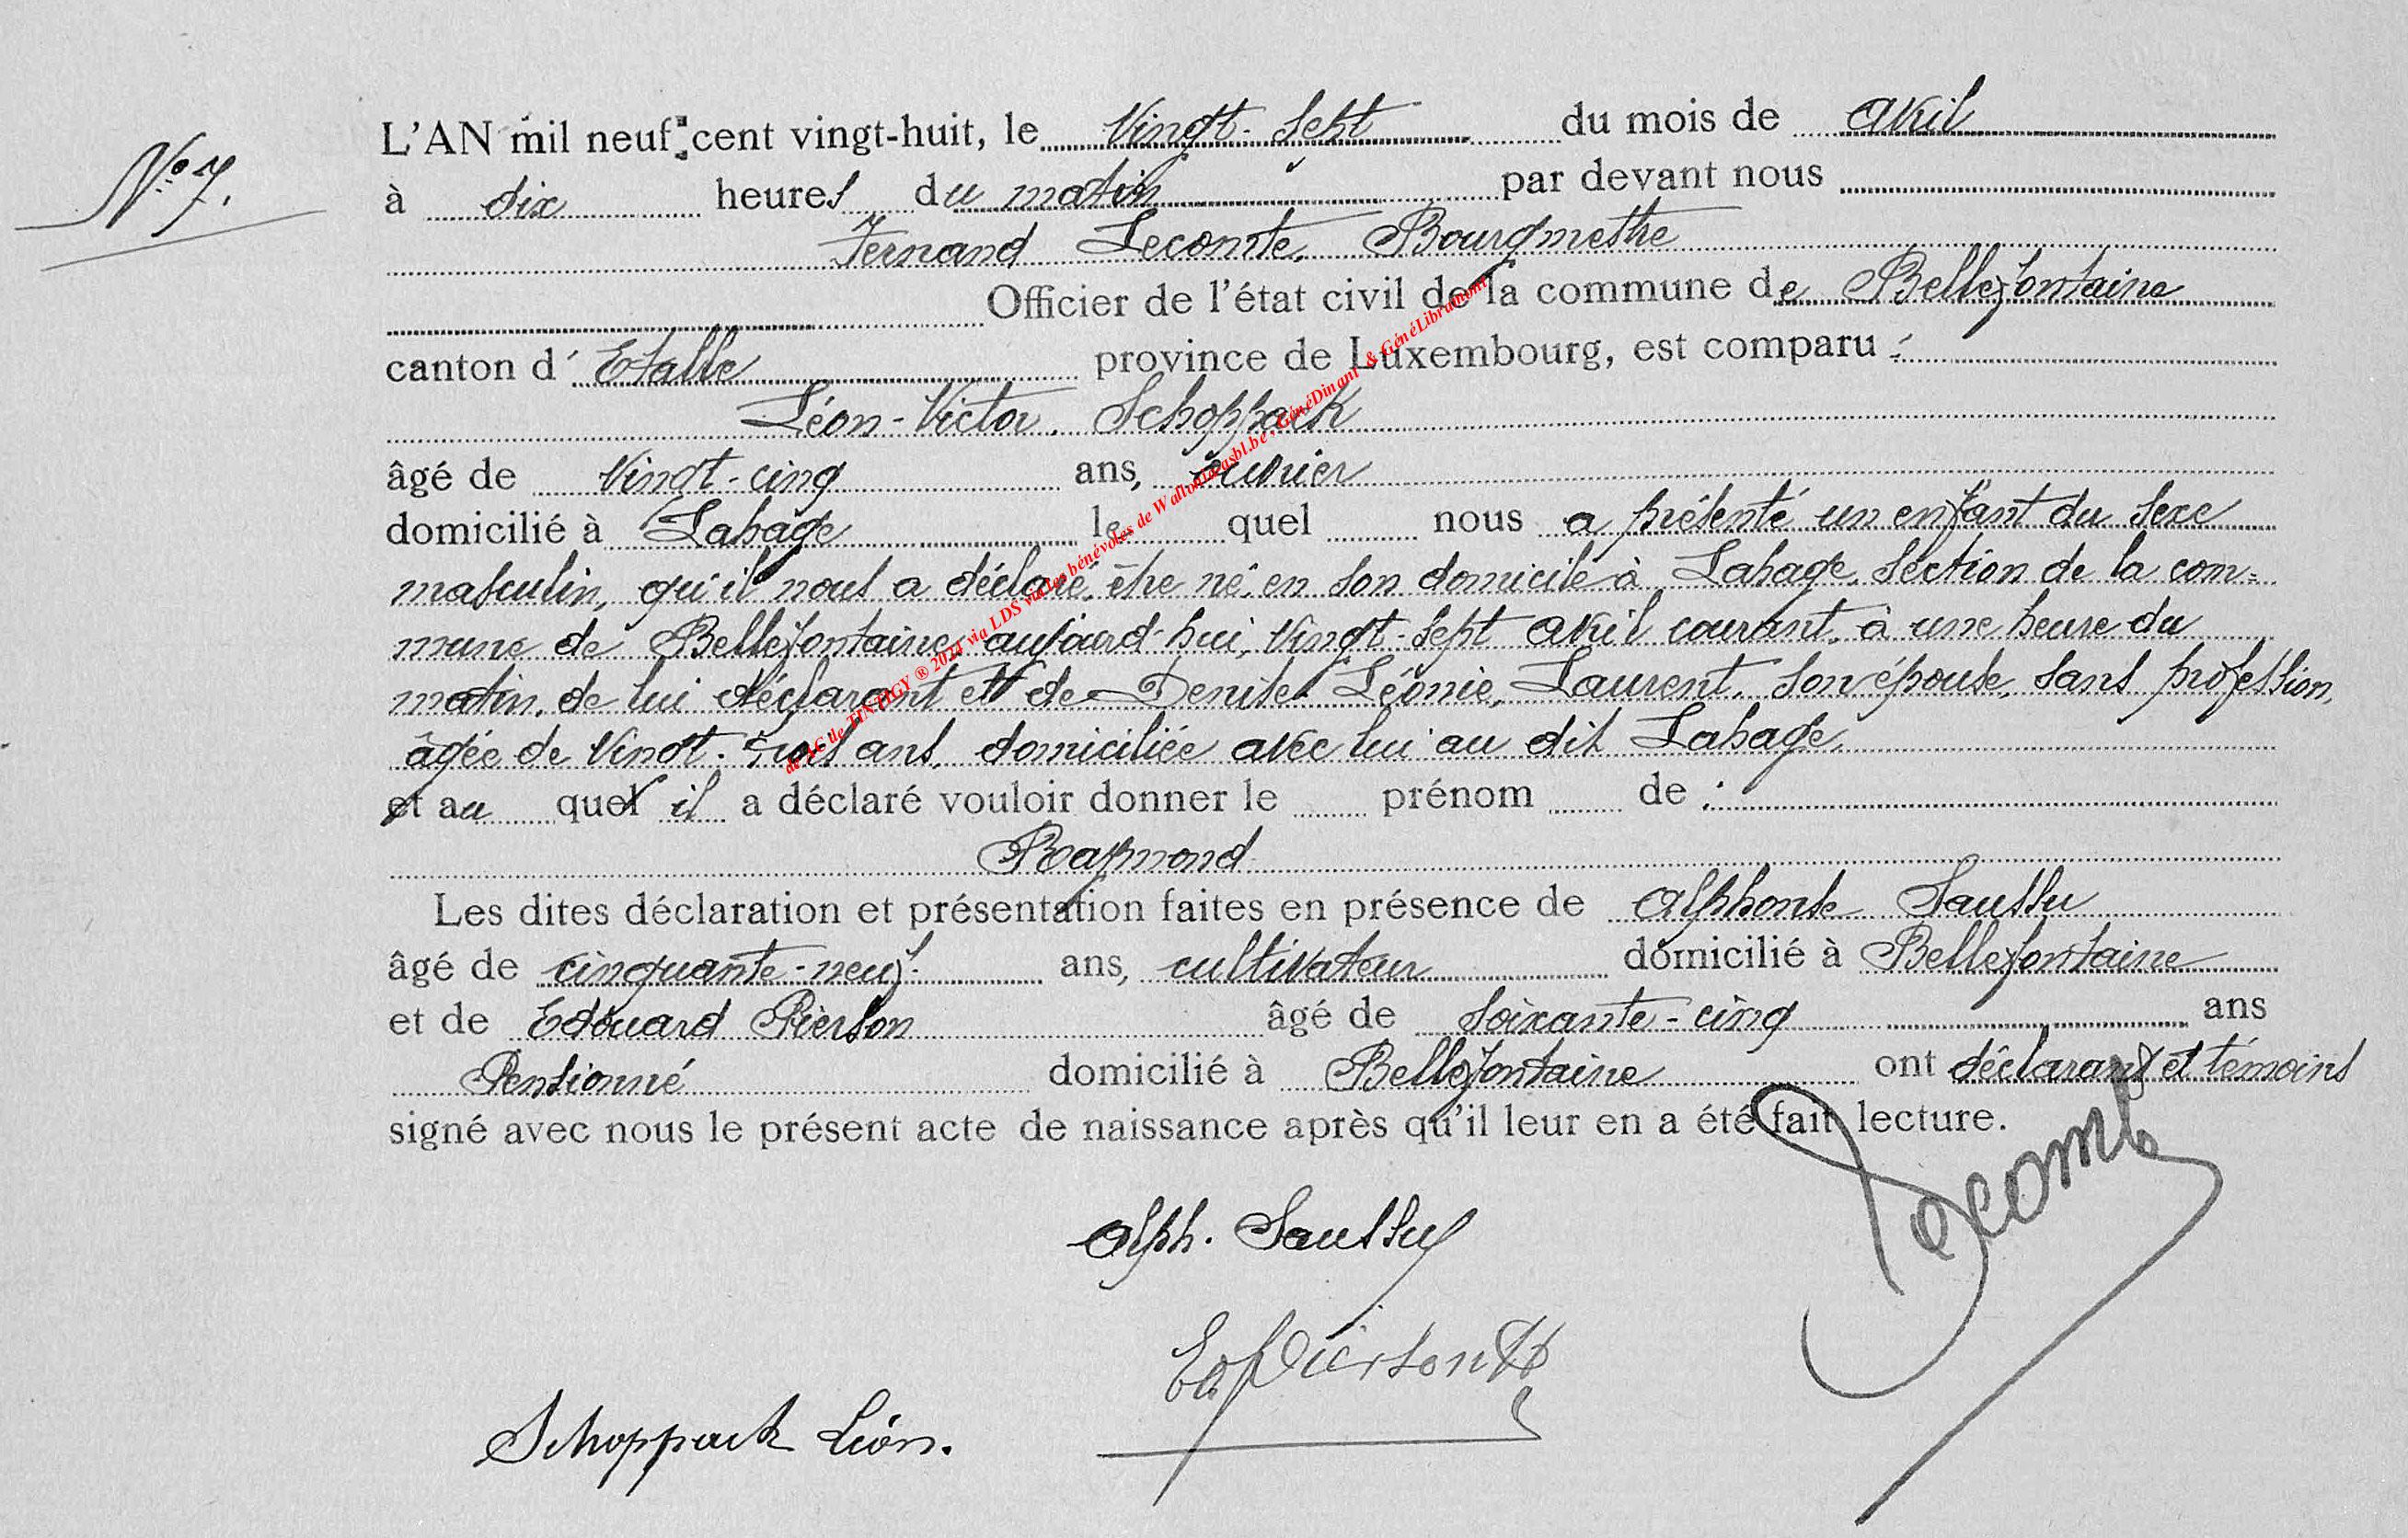 N° 7.
L'AN mil neuf cent vingt-huit, le vingt-sept du mois de avril
à dix heures du matin par devant nous
Fernand Lecomte, Bourgmestre
Officier de l'état civil de la commune de Bellefontaine
canton d' Etalle province de Luxembourg, est comparu :
Léon-Victor Schoppach
âgé de vingt-cinq ans, ouvrier
domicilié à Lahage lequel nous a présenté un enfant du sexe
masculin, qu'il nous a déclaré être né en son domicile à Lahage, section de la com=
mune de Bellefontaine, aujourd'hui, vingt-sept avril courant, à une heure du
matin, de lui déclarant et de Denise Léonie, Laurent, son épouse, sans profession,
âgée de vingt-trois ans, domiciliée avec lui au dit Lahage,
et au quel il a déclaré vouloir donner le prénom de :
Raymond
Les dites déclaration et présentation faites en présence de Alphonse Saussu
âgé de cinquante-neuf ans, cultivateur domicilié à Bellefontaine
et de Edouard Pierson âgé de soixante-cinq ans
Pensionné domicilié à Bellefontaine ont déclarant et témoins
signé avec nous le présent acte de naissance après qu'il leur en a été fait lecture.
Alph. Saussu
Lecomte
Ed Pierson
Schoppach Léon.
de AC de TINTIGY ® 2024 via LDS via les bénévoles de Walloniaasbl.be, GénéDinant & GénéLibramont